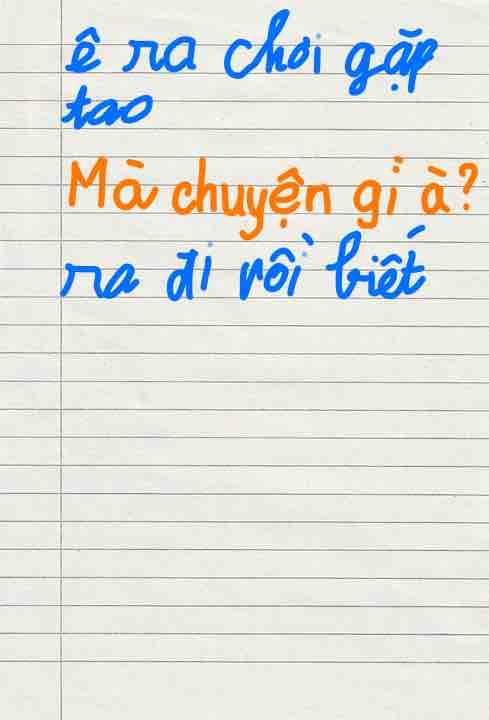 ê ra chơi gặp
tao
Mà chuyện gì à?
ra đi rồi biết